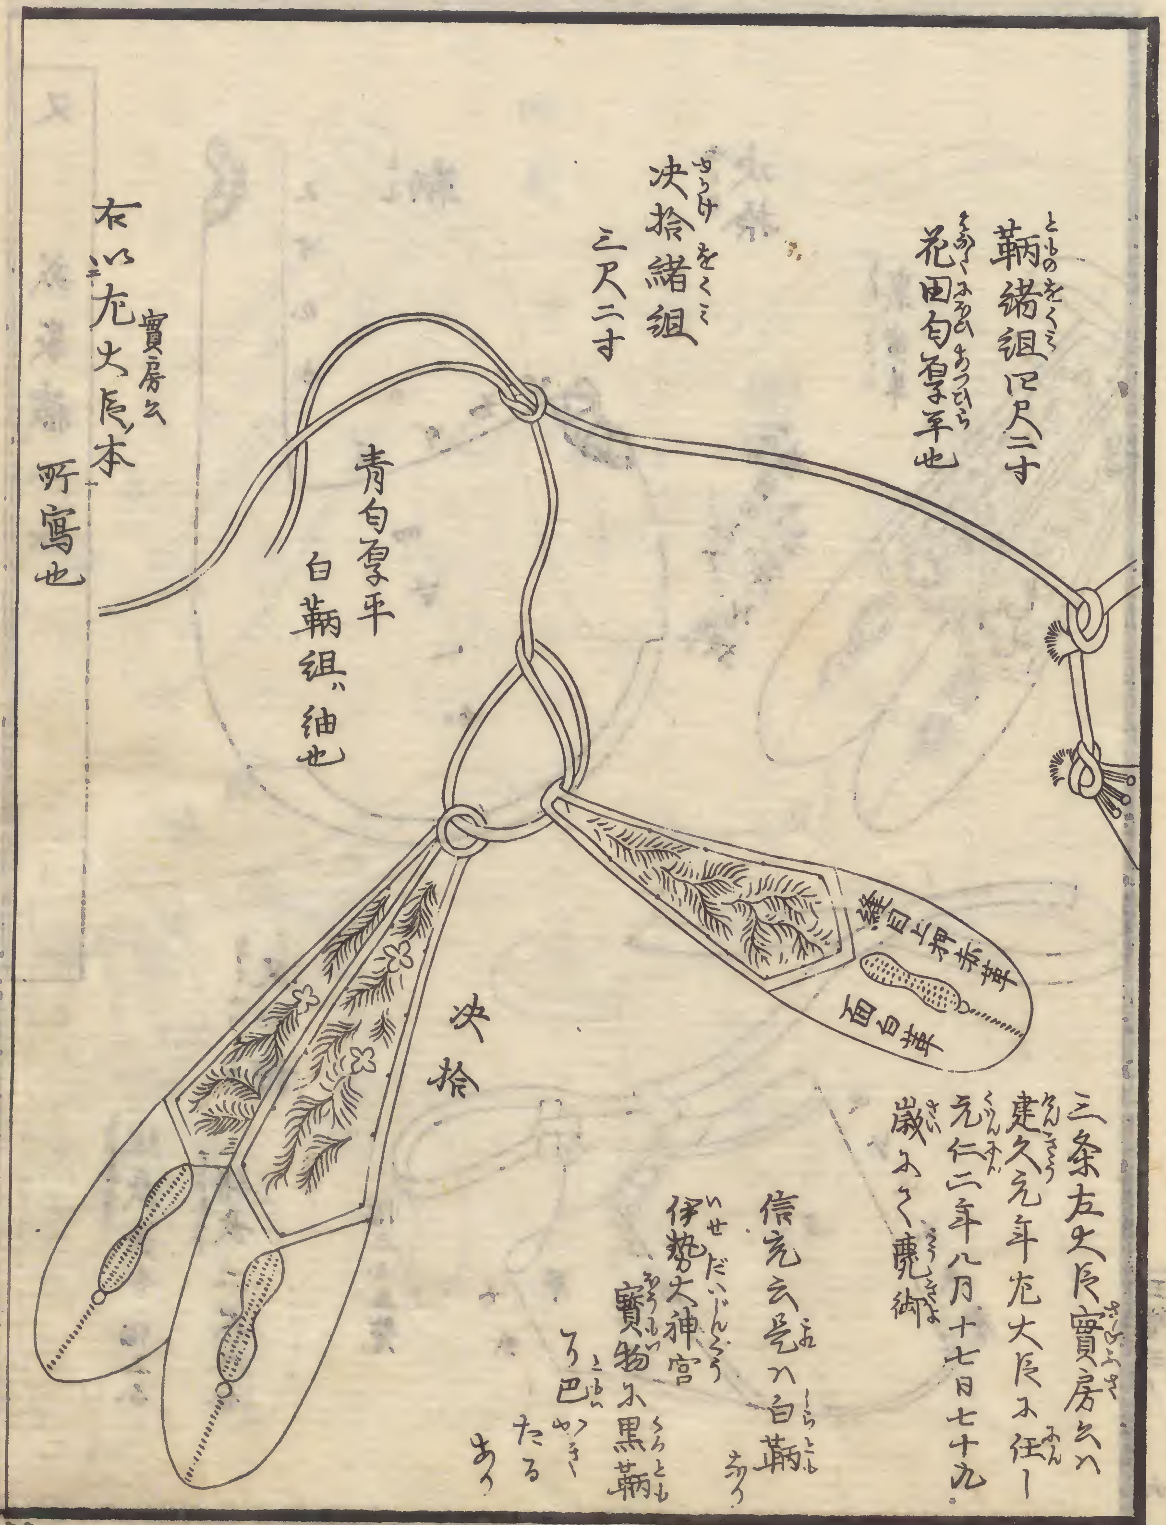 鞆緒組四尺二寸
花田匂厚平也
決拾緒組
三尺二寸
青匂厚平
白鞆組ハ紬也
右以左大臣本
實房公
所寫也
決拾
縫目上押赤革
面白革
三条左大臣實房公ハ
建久元年左大臣に任し
元仁二年八月十七日七十九
歳にて薨御
信充云是ハ白鞆
なり
伊勢大神宮
寳物に黒鞆
に巴かき
たる
あり